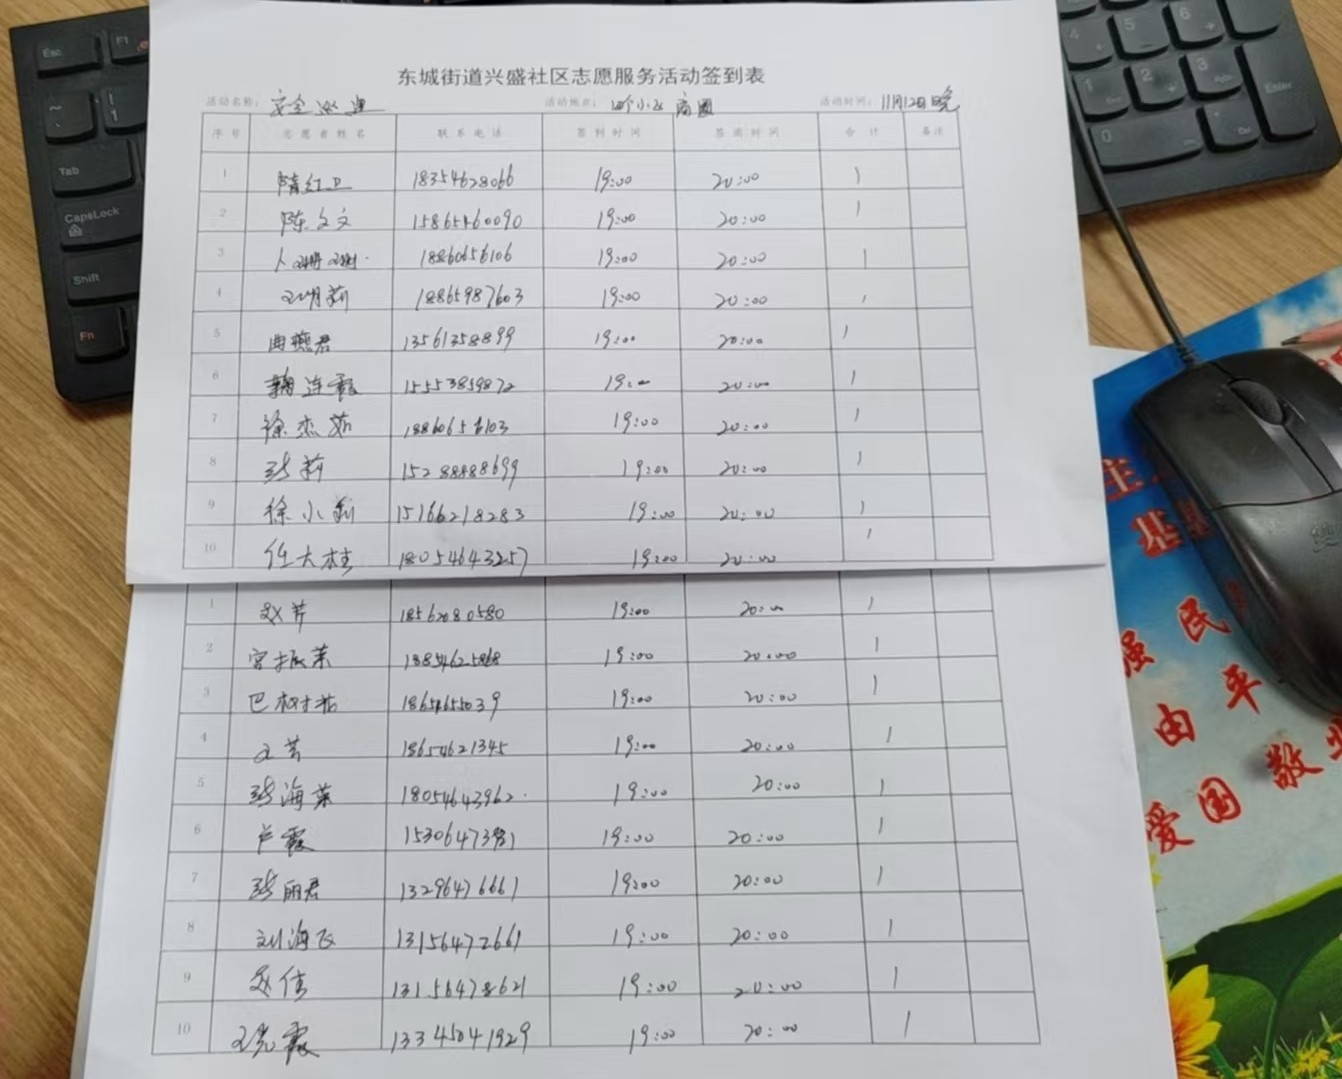 东城街道兴盛社区志愿服务活动签到表
活动名称: 安全巡逻 活动地点: 四个小区 商圈 活动时间: 11月12日晚
序号 志愿者姓名 联系电话 签到时间 签离时间 合计 备注
1 隋红卫 18354628066 19:00 20:00 1
2 陈文文 15865460090 19:00 20:00 1
3 18860656106 19:00 20:00 1
4 18865987603 19:00 20:00 1
5 曲燕君 13561358899 19:00 20:00 1
6 鞠连霞 15553859872 19:00 20:00 1
7 徐杰茹 18860656103 19:00 20:00 1
8 张莉 15288888699 19:00 20:00 1
9 徐小莉 15166218283 19:00 20:00 1
10 任大柱 18054643257 19:00 20:00 1
1 赵芹 18562080580 19:00 20:00 1
2 宫振荣 19:00 20:00 1
3 巴树花 19:00 20:00 1
4 18654621345 19:00 20:00 1
5 张海英 18054643962 19:00 20:00 1
6 卢霞 19:00 20:00 1
7 张丽君 13296476661 19:00 20:00 1
8 刘海飞 13156472661 19:00 20:00 1
9 赵倩 13156478621 19:00 20:00 1
10 王光霞 13345041929 19:00 20:00 1
Esc F1
~ ` ! 1
Tab
CapsLock
Shift
Fn
4 5 6
1 2 3 Enter
0 Del
主
基
强 民
由 平
爱 国 敬 业